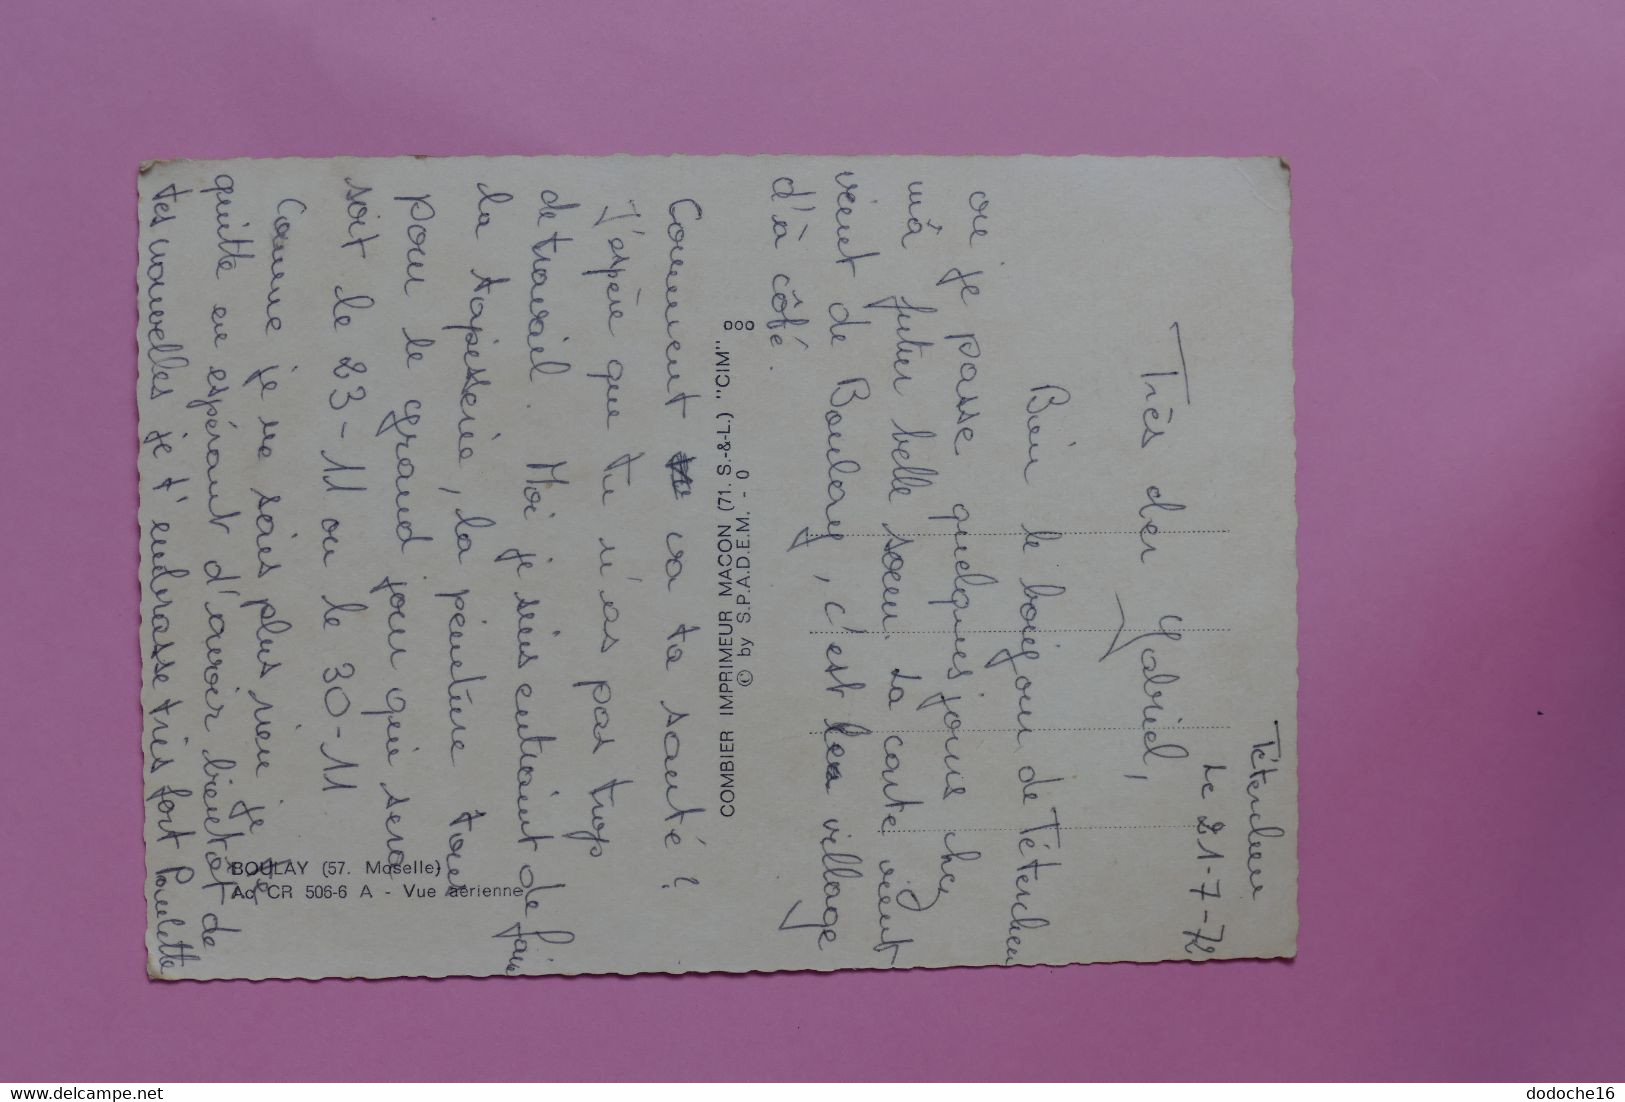 Téterchen
Le 21-7-72
Très cher Gabriel,
Bien le bonjour de Téterchen
ou je passe quelques jours chez
mà futur belle soeur. La carte vient
vient de Boulay, c'est le village
d'à côté.
Comment va ta santé ?
J'espère que tu n'as pas trop
de travail. Moi je suis entraint de faire
la tapisserie, la penture tous
pour le grand jour qui sera
soit le 23-11 ou le 30-11
Comme je ne sais plus rien je te
quitte en espérant d'avoir bientôt de
tes nouvelles je t'embrasse très fort Paulette
COMBIER IMPRIMEUR MACON (71. S.-&-L.) "CIM"
© by S.P.A.D.E.M. - 0
BOULAY (57. Moselle)
Ad CR 506-6 A - Vue aérienne
delcampe.net
dodoche16